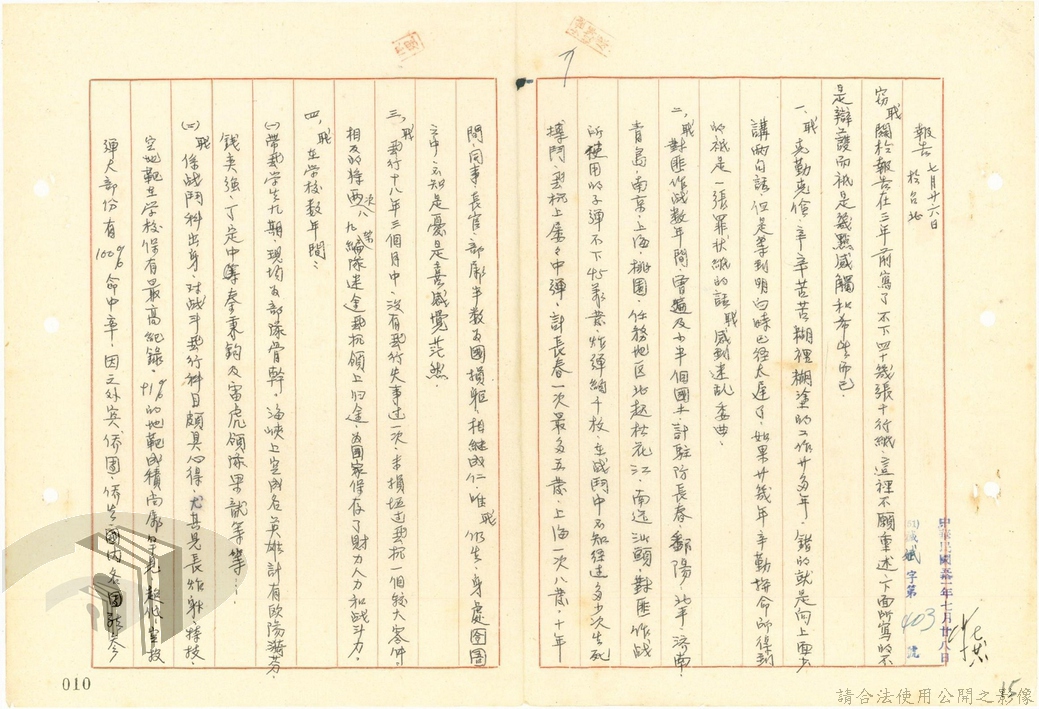 報告 七月廿六日
於台北
竊職關於報告在三年前寫了不下四十幾張十行紙、這裡不願重述、下面所寫的不
是辯護而祇是幾點感觸和希望而已.
一、職克勤克儉、辛辛苦苦糊裡糊塗的工作廿多年、錯的就是向上面少
講两句話、但是等到明白時已经太遲了、如果廿幾年辛勤拚命所得到
的祇是一張罪状紙的話職感到迷乱委曲.
二、職對匪作战数年間、曾遍及大半個國土、計駐防長春、鄱陽、北平、濟南、
青島、南京、上海、桃園、任務地区北起松花江、南迄汕頭、對匪作战
所使用的子彈不下45萬發、炸彈緍千枚、在战鬥中不知经过多少次生死
搏鬥、飛机上屡々中彈、計長春一次最多五發、上海一次八發、十年
間、同事長官部屬半数为國捐軀、相継成仁、唯職仍生、身處囹圄
之中不知是憂是喜感覺茫然.
三、職飛行十八年三個月中、没有飛行失事过一次、未損壞过飛机一個較大零件、
相反的将两次八、九架編隊迷途飛机領上归途、为國家保存了財力人力和战斗力.
四、職在学校数年間:
㈠帶飛学生九期、現均为部隊骨幹。海峽上空成名英雄計有歐陽漪棻、
錢奕強、丁定中等秦秉鈞及雷虎領隊果毓等等……
㈡職係战鬥科出身、对战斗飛行科目頗具心得、尤其見長炸射特技、
空地靶在学校保有最高紀錄、91%的地靶成積尚屬罕見、超低空投
彈大部份有100%命中率、因之外宾、侨團、侨生國內各國龍參
中華民國五一年七月廿八日
(51)臧斌字第403號
010
15
請合法使用公開之影像